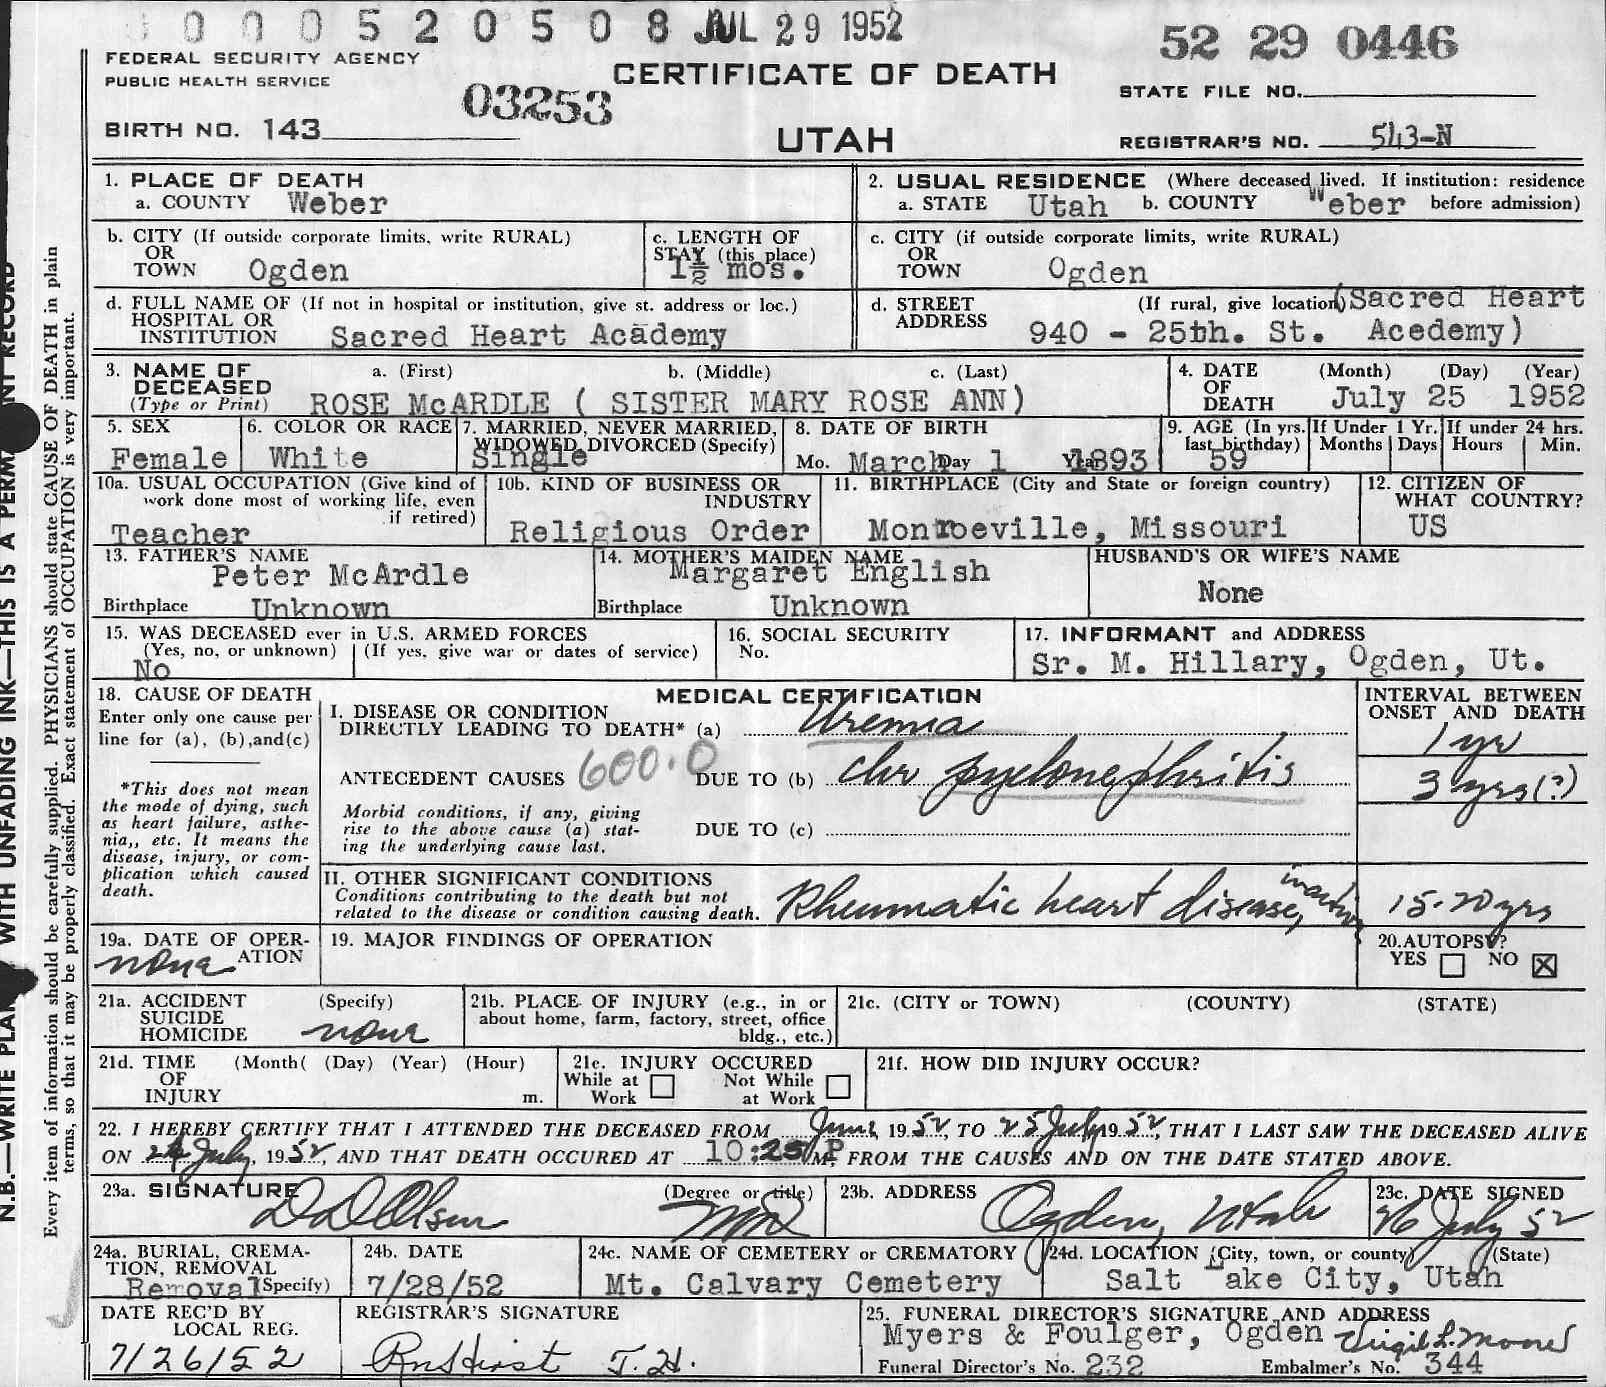 0 0 0 5 2 0 5 0 8 JUL 29 1952
52 29 0446
FEDERAL SECURITY AGENCY
PUBLIC HEALTH SERVICE
CERTIFICATE OF DEATH
STATE FILE NO.
03253
BIRTH NO. 143
UTAH
REGISTRAR'S NO. 543-N
1. PLACE OF DEATH
a. COUNTY Weber
2. USUAL RESIDENCE (Where deceased lived. If institution: residence
a. STATE Utah b. COUNTY Weber before admission)
b. CITY (If outside corporate limits, write RURAL)
OR
TOWN Ogden
c. LENGTH OF
STAY (this place)
1½ mos.
c. CITY (if outside corporate limits, write RURAL)
OR
TOWN Ogden
d. FULL NAME OF (If not in hospital or institution, give st. address or loc.)
HOSPITAL OR
INSTITUTION Sacred Heart Academy
d. STREET (If rural, give location) (Sacred Heart
ADDRESS 940 - 25th. St. Acedemy)
3. NAME OF a. (First) b. (Middle) c. (Last)
DECEASED
(Type or Print) ROSE McARDLE ( SISTER MARY ROSE ANN)
4. DATE (Month) (Day) (Year)
OF
DEATH July 25 1952
5. SEX
Female
6. COLOR OR RACE
White
7. MARRIED, NEVER MARRIED,
WIDOWED, DIVORCED (Specify)
Single
8. DATE OF BIRTH
Mo. March Day 1 Year 1893
9. AGE (In yrs. last birthday) 59
If Under 1 Yr. Months Days
If under 24 hrs. Hours Min.
10a. USUAL OCCUPATION (Give kind of
work done most of working life, even
if retired)
Teacher
10b. KIND OF BUSINESS OR
INDUSTRY
Religious Order
11. BIRTHPLACE (City and State or foreign country)
Monroeville, Missouri
12. CITIZEN OF
WHAT COUNTRY?
US
13. FATHER'S NAME
Peter McArdle
Birthplace Unknown
14. MOTHER'S MAIDEN NAME
Margaret English
Birthplace Unknown
HUSBAND'S OR WIFE'S NAME
None
15. WAS DECEASED ever in U.S. ARMED FORCES
(Yes, no, or unknown) (If yes, give war or dates of service)
No
16. SOCIAL SECURITY
No.
17. INFORMANT and ADDRESS
Sr. M. Hillary, Ogden, Ut.
18. CAUSE OF DEATH
Enter only one cause per
line for (a), (b),and(c)
*This does not mean
the mode of dying, such
as heart failure, asthe-
nia,, etc. It means the
disease, injury, or com-
plication which caused
death.
MEDICAL CERTIFICATION
I. DISEASE OR CONDITION
DIRECTLY LEADING TO DEATH* (a) Uremia
ANTECEDENT CAUSES 600.0 DUE TO (b) chr pyelonephritis
Morbid conditions, if any, giving
rise to the above cause (a) stat-
ing the underlying cause last.
DUE TO (c)
INTERVAL BETWEEN
ONSET AND DEATH
1 yr
3 yrs(?)
II. OTHER SIGNIFICANT CONDITIONS
Conditions contributing to the death but not
related to the disease or condition causing death.
Rheumatic heart disease, inactive
15-20 yrs
19a. DATE OF OPER-
ATION
none
19. MAJOR FINDINGS OF OPERATION
20.AUTOPSY?
YES NO X
21a. ACCIDENT (Specify)
SUICIDE
HOMICIDE none
21b. PLACE OF INJURY (e.g., in or
about home, farm, factory, street, office
bldg., etc.)
21c. (CITY or TOWN) (COUNTY) (STATE)
21d. TIME (Month( (Day) (Year) (Hour)
OF
INJURY m.
21e. INJURY OCCURED
While at Work Not While at Work
21f. HOW DID INJURY OCCUR?
22. I HEREBY CERTIFY THAT I ATTENDED THE DECEASED FROM June 1952, TO 25 July 1952, THAT I LAST SAW THE DECEASED ALIVE
ON 24 July, 1952, AND THAT DEATH OCCURED AT 10:25 P M, FROM THE CAUSES AND ON THE DATE STATED ABOVE.
23a. SIGNATURE (Degree or title)
D D Olsen MD
23b. ADDRESS
Ogden, Utah
23c. DATE SIGNED
26 July 52
24a. BURIAL, CREMA-
TION, REMOVAL
Removal (Specify)
24b. DATE
7/28/52
24c. NAME OF CEMETERY or CREMATORY
Mt. Calvary Cemetery
24d. LOCATION (City, town, or county) (State)
Salt Lake City, Utah
DATE REC'D BY
LOCAL REG.
7/26/52
REGISTRAR'S SIGNATURE
25. FUNERAL DIRECTOR'S SIGNATURE AND ADDRESS
Myers & Foulger, Ogden Virgil L. Moore
Funeral Director's No. 232 Embalmer's No. 344
Every item of information should be carefully supplied. PHYSICIANS should state CAUSE OF DEATH in plain
terms, so that it may be properly classified. Exact statement of OCCUPATION is very important.